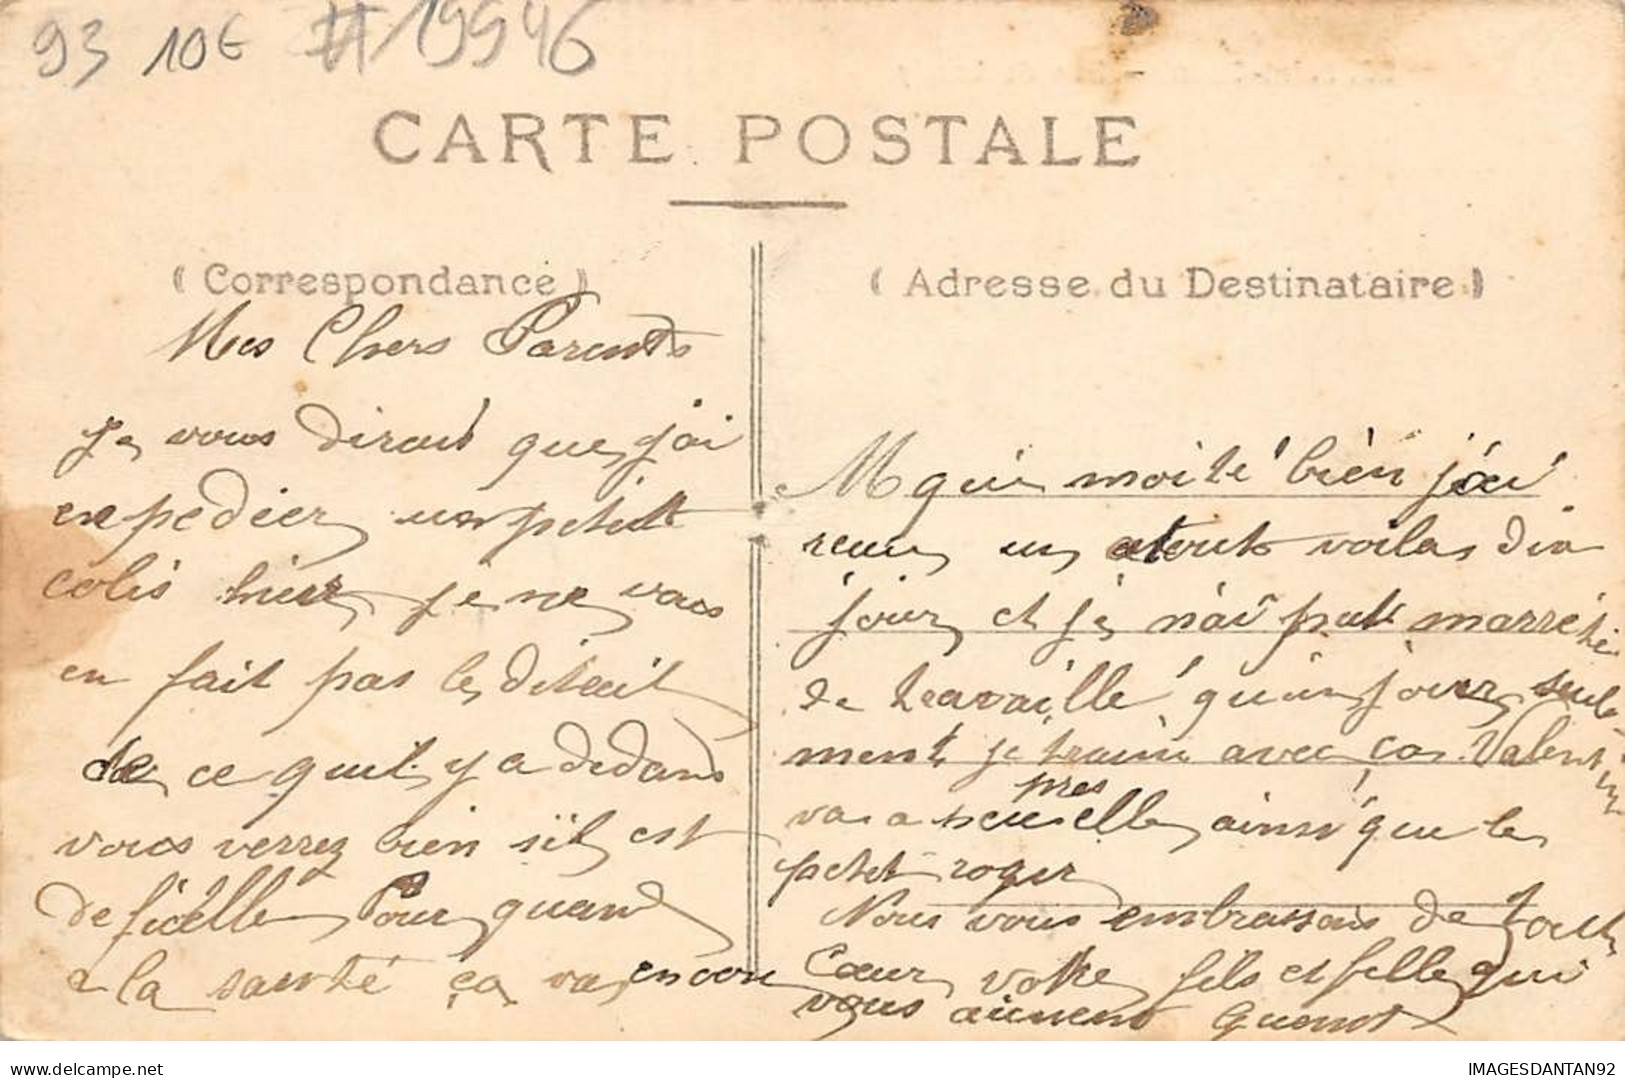 93 10€ #19946
CARTE POSTALE
(Correspondance)
(Adresse du Destinataire)
Mes Chers Parents
Je vous dirait que j'ai
expedier un petit
colis hier je ne vous
en fait pas le détail
de ce quil y a dedans
vous verrez bien s'il est
de ficelle Pour quand
a la santé ça va encore
M qui moité bien j'ai
recu un atout voila dix
jour et je n'ai pat marrété
de travaillé qu'un jour seule
ment je traine avec ça Valent
va a pres elle ainsi que le
petit roger
Nous vous embrassons de tout
Cœur votre fils et fille qui
vous aiment Quenot
IMAGESDANTAN92